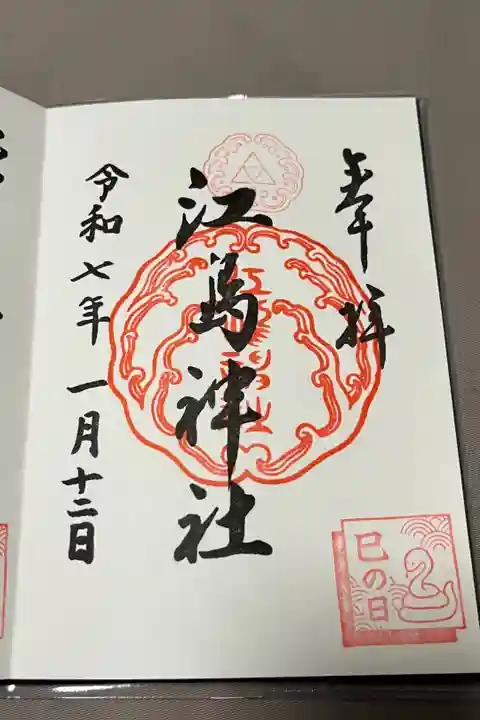 奉拝
江島神社
令和七年 一月十二日
巳の日